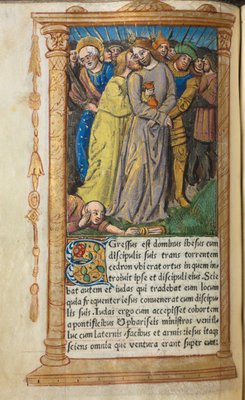 Gressus est dominus ihesus cum
discipulis suis trans torrentem
cedron vbi erat ortus in quem in
troiuit ipse et discipuli eius. Scie
bat autem et iudas qui tradebat eum locum
quia frequenter iesus conuenerat cum discipu
lis suis. Iudas ergo cum accepisset cohortem
a pontificibus et phariseis ministros venit il
luc cum laternis et facibus et armis: iesus itaqz
sciens omnia que ventura erant super eum: